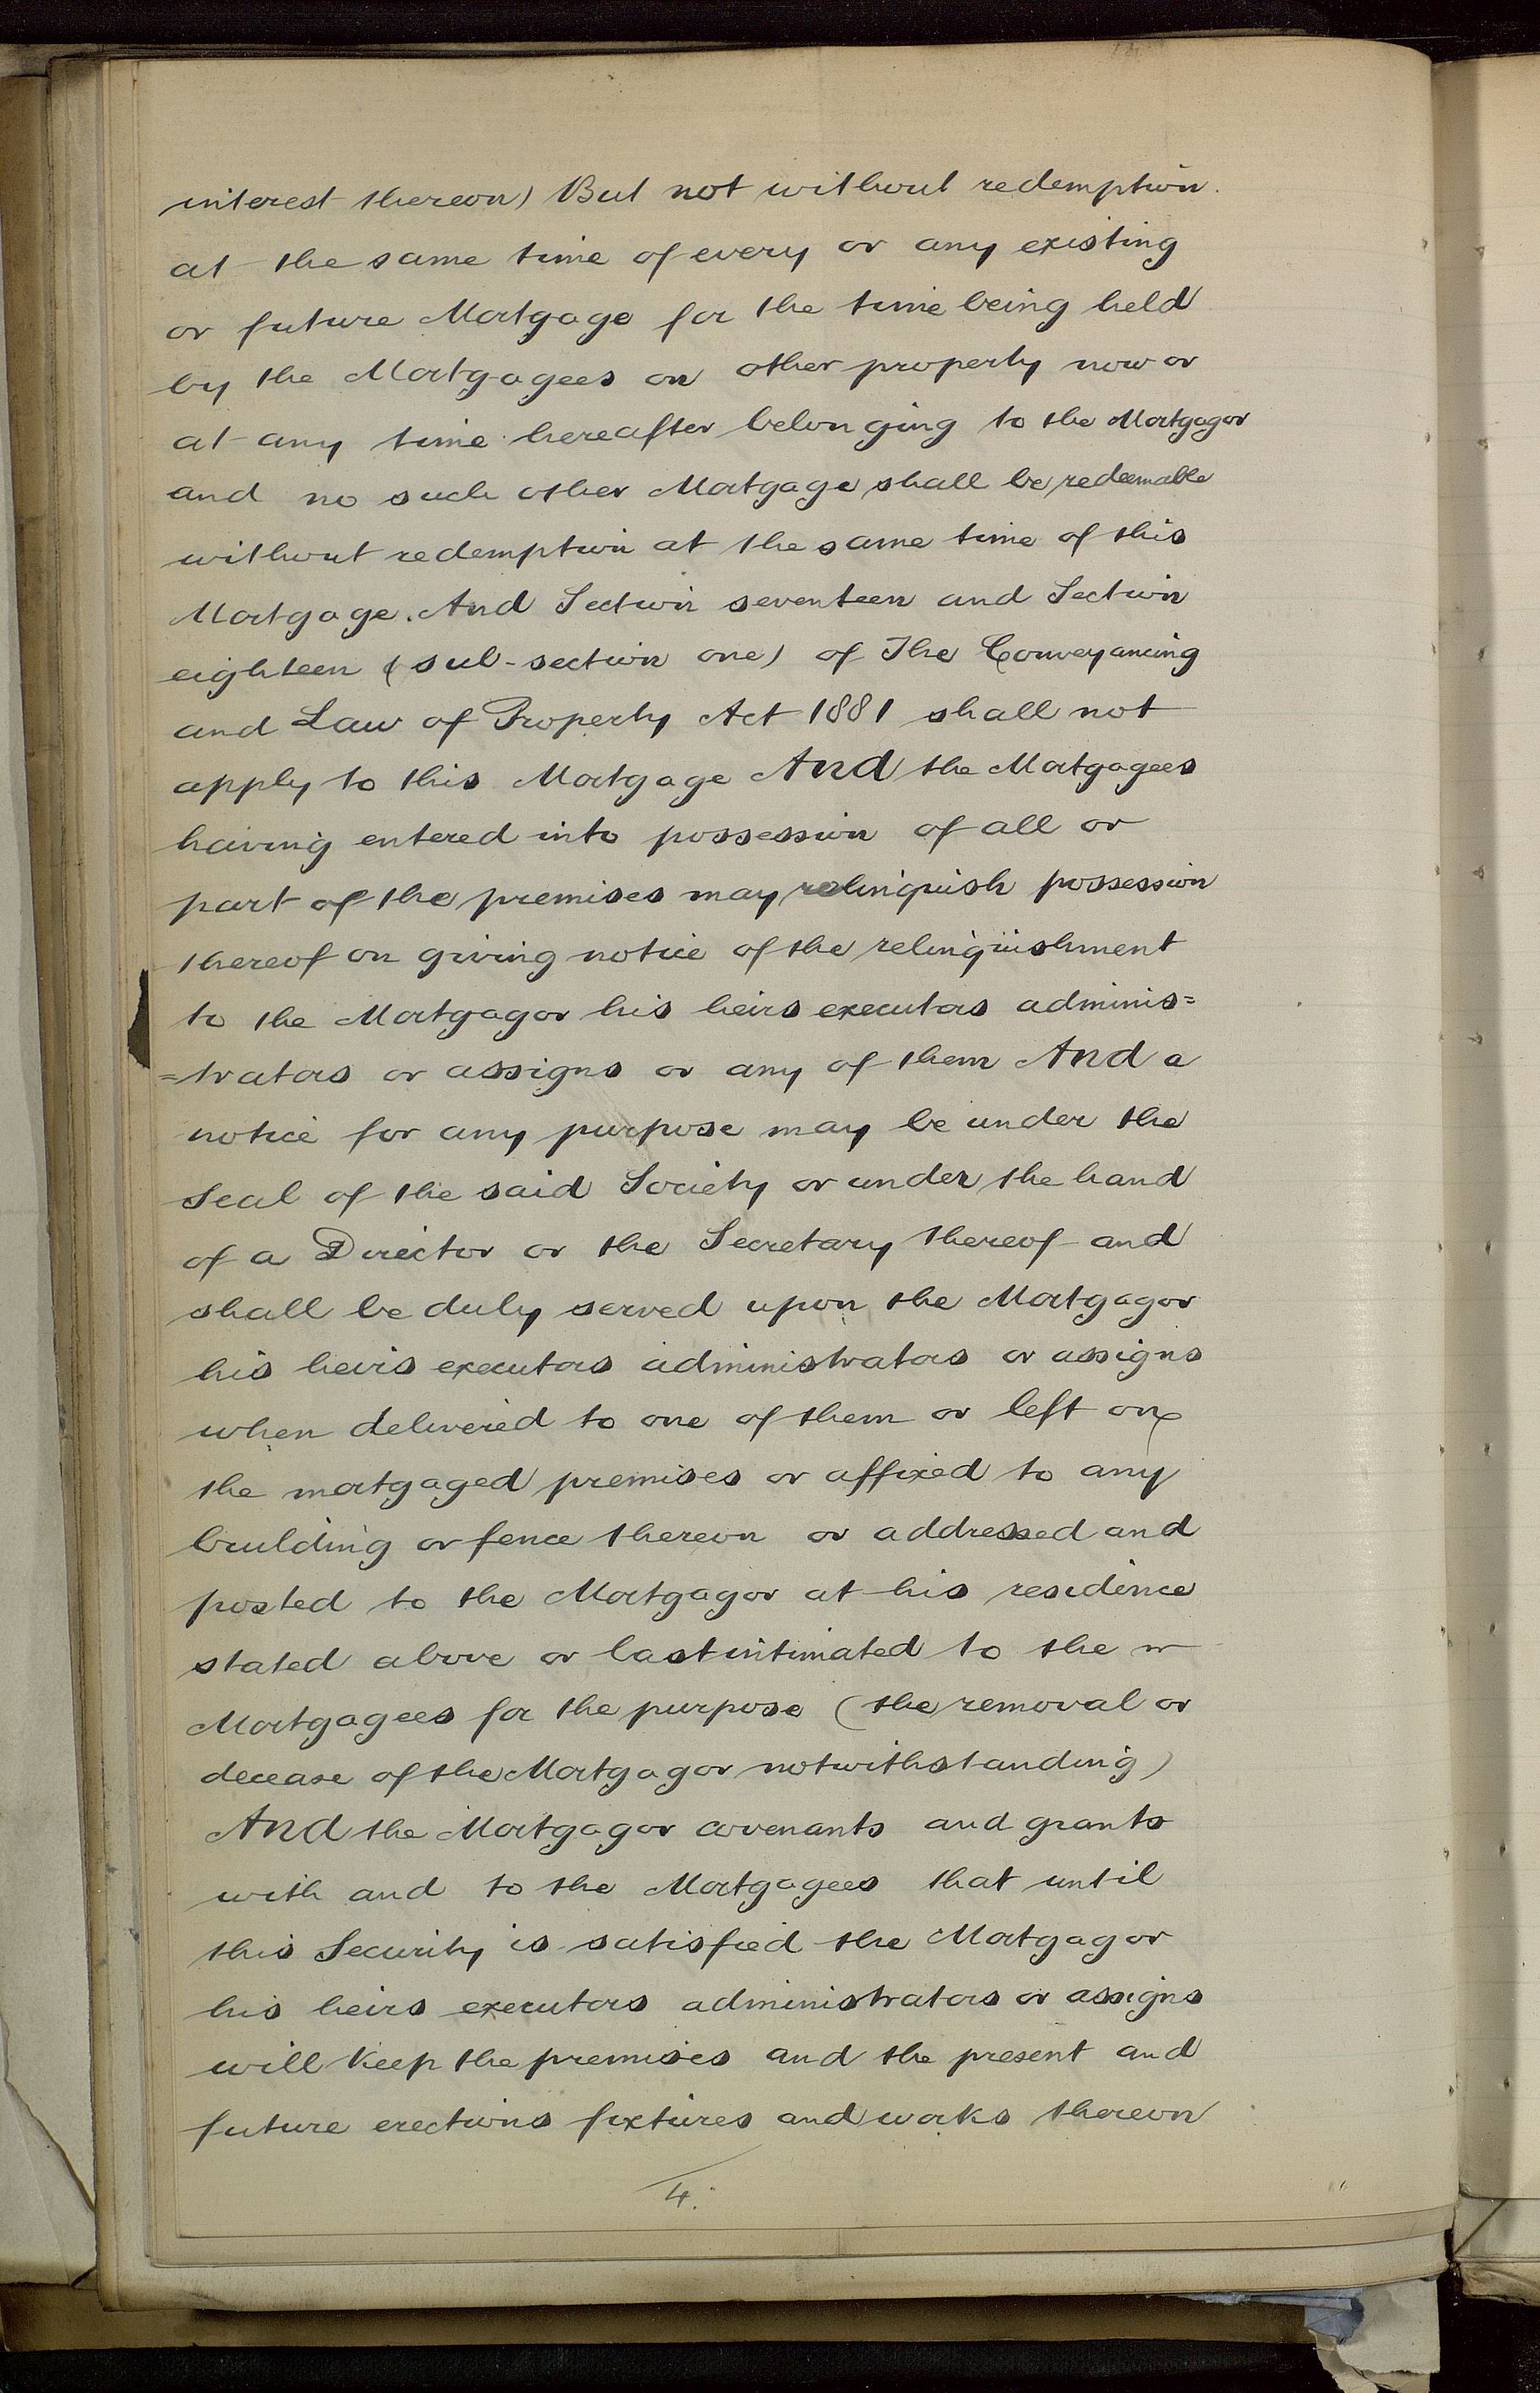 interest thereon) But not without redemption
at the same time of every or any existing
or future Mortgage for the time being held
by the Mortgagees on other property now or
at any time hereafter belonging to the Mortgagor
and no such other Mortgage shall be redeemable
without redemption at the same time of this
Mortgage. And Section seventeen and Section
eighteen (sub-section one) of The Conveyancing
and Law of Property Act 1881 shall not
apply to this Mortgage And the Mortgagees
having entered into possession of all or
part of the premises may relinquish possession
thereof on giving notice of the relinquishment
to the Mortgagor his heirs executors adminis=
=trators or assigns or any of them And a
notice for any purpose may be under the
Seal of the said Society or under the hand
of a Director or the Secretary thereof and
shall be duly served upon the Mortgagor
his heirs executors administrators or assigns
when delivered to one of them or left on
the mortgaged premises or affixed to any
building or fence thereon or addressed and
posted to the Mortgagor at his residence
stated above or last intimated to the
Mortgagees for the purpose (the removal or
decease of the Mortgagor notwithstanding)
And the Mortgagor covenants and grants
with and to the Mortgagees that until
this Security is satisfied the Mortgagor
his heirs executors administrators or assigns
will keep the premises and the present and
future erections fixtures and works thereon
4.